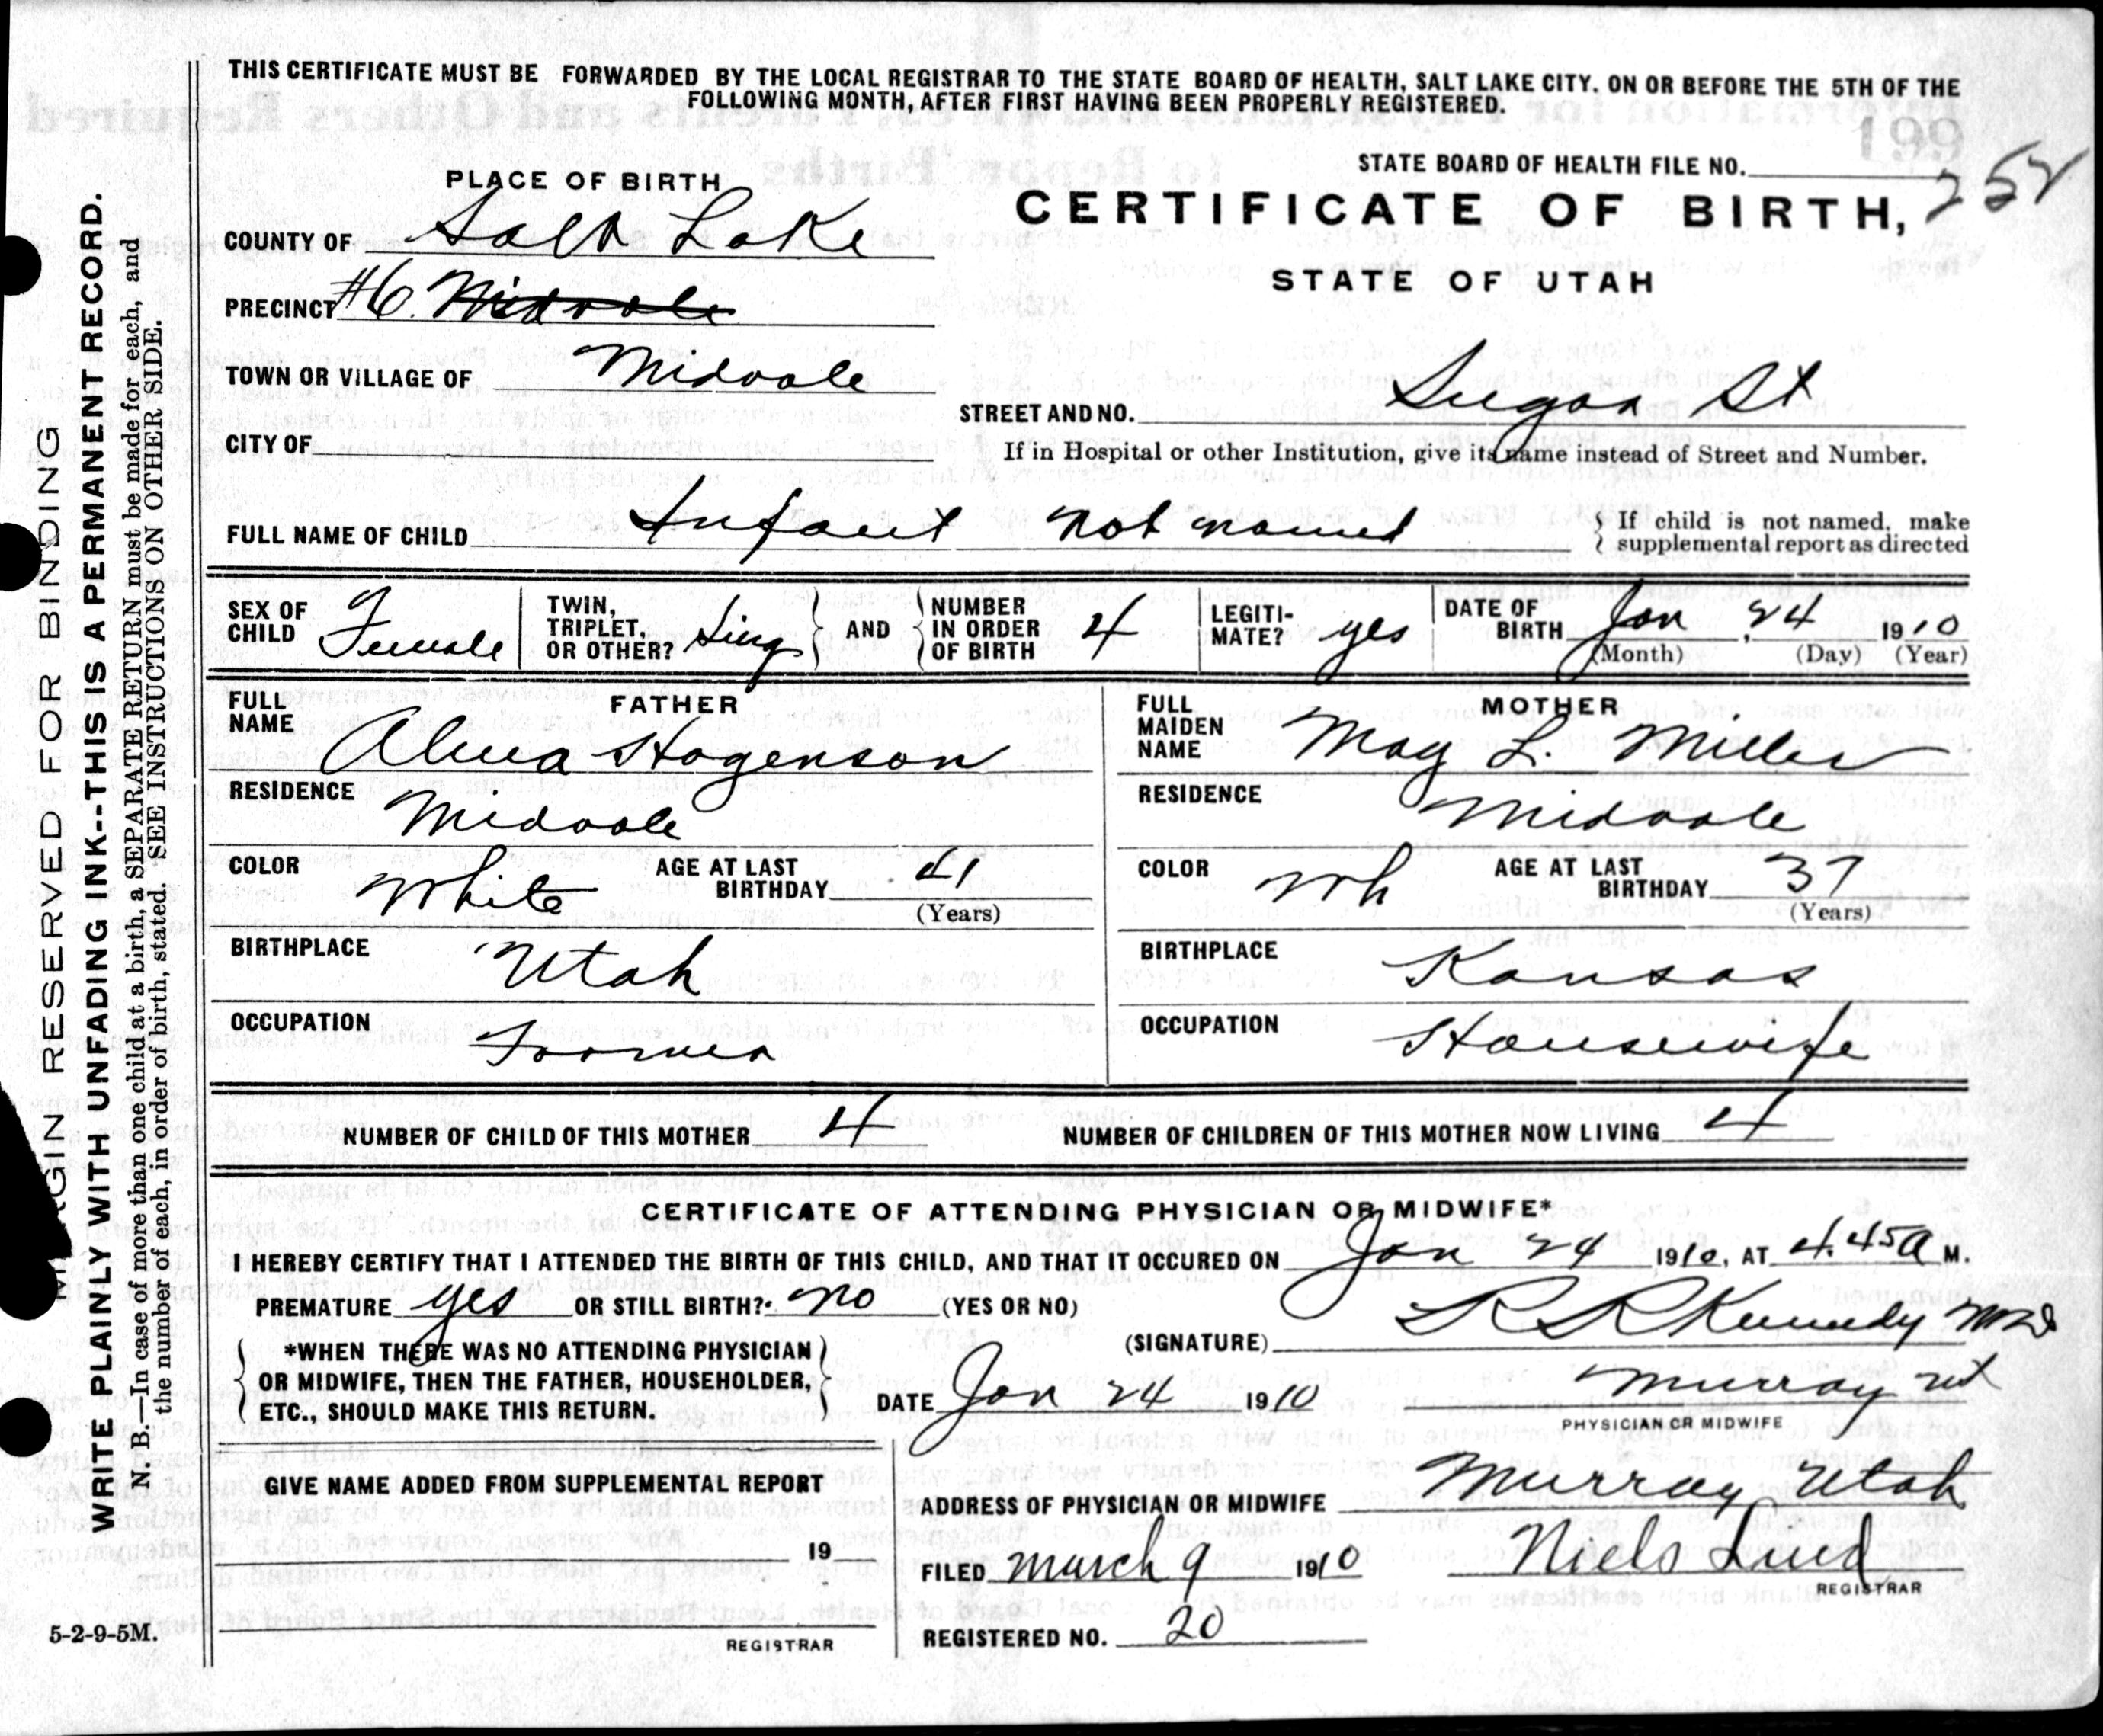 THIS CERTIFICATE MUST BE FORWARDED BY THE LOCAL REGISTRAR TO THE STATE BOARD OF HEALTH, SALT LAKE CITY. ON OR BEFORE THE 5TH OF THE
FOLLOWING MONTH, AFTER FIRST HAVING BEEN PROPERLY REGISTERED.
199
STATE BOARD OF HEALTH FILE NO. 252
PLACE OF BIRTH
CERTIFICATE OF BIRTH,
STATE OF UTAH
COUNTY OF Salt Lake
PRECINCT #6. Midvale
TOWN OR VILLAGE OF Midvale
STREET AND NO. Sugar St
CITY OF
If in Hospital or other Institution, give its name instead of Street and Number.
FULL NAME OF CHILD Infant not named
If child is not named, make
supplemental report as directed
SEX OF CHILD Female
TWIN, TRIPLET, OR OTHER? Sing
AND
NUMBER IN ORDER OF BIRTH 4
LEGITI-MATE? yes
DATE OF BIRTH Jan, 24 1910
(Month) (Day) (Year)
FATHER
FULL NAME Alma Hogenson
RESIDENCE Midvale
COLOR White AGE AT LAST BIRTHDAY 41
(Years)
BIRTHPLACE Utah
OCCUPATION Farmer
MOTHER
FULL MAIDEN NAME May L. Miller
RESIDENCE Midvale
COLOR Wh AGE AT LAST BIRTHDAY 37
(Years)
BIRTHPLACE Kansas
OCCUPATION Housewife
NUMBER OF CHILD OF THIS MOTHER 4 NUMBER OF CHILDREN OF THIS MOTHER NOW LIVING 4
CERTIFICATE OF ATTENDING PHYSICIAN OR MIDWIFE*
I HEREBY CERTIFY THAT I ATTENDED THE BIRTH OF THIS CHILD, AND THAT IT OCCURED ON Jan 24 1910, AT 4.45a M.
PREMATURE yes OR STILL BIRTH? no (YES OR NO)
(SIGNATURE) R R Kennedy MD
*WHEN THERE WAS NO ATTENDING PHYSICIAN
OR MIDWIFE, THEN THE FATHER, HOUSEHOLDER,
ETC., SHOULD MAKE THIS RETURN.
DATE Jan 24 1910 Murray Ut
PHYSICIAN OR MIDWIFE
GIVE NAME ADDED FROM SUPPLEMENTAL REPORT
19
REGISTRAR
ADDRESS OF PHYSICIAN OR MIDWIFE Murray Utah
FILED March 9 1910 Niels Lind
REGISTRAR
REGISTERED NO. 20
5-2-9-5M.
MARGIN RESERVED FOR BINDING
WRITE PLAINLY WITH UNFADING INK--THIS IS A PERMANENT RECORD.
N. B.—In case of more than one child at a birth, a SEPARATE RETURN must be made for each, and
the number of each, in order of birth, stated. SEE INSTRUCTIONS ON OTHER SIDE.